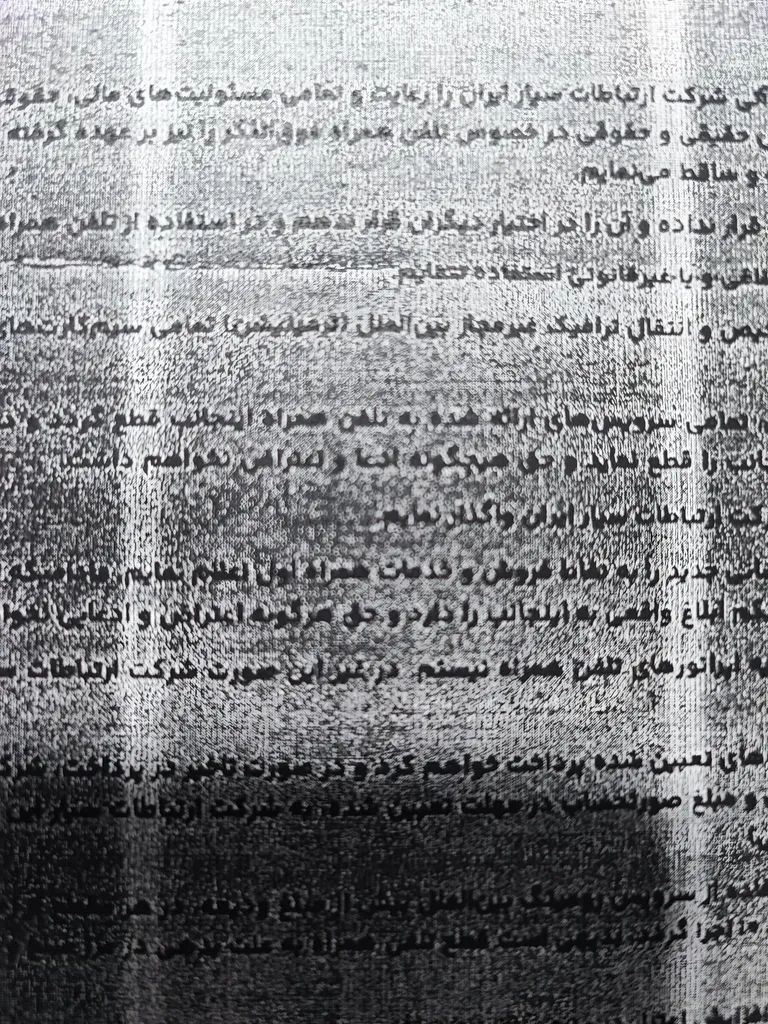 شرکت ارتباطات سیار ایران را رعایت و تمامی مسئولیت‌های مالی، حقوقی
حقیقی و حقوقی در خصوص تلفن همراه فوق‌الذکر را نیز بر عهده گرفته
و ساقط می‌نمایم.
قرار نداده و آن را در اختیار دیگران قرار ندهم و در استفاده از تلفن همراه
و یا غیرقانونی استفاده ننمایم.
و انتقال ترافیک غیرمجاز بین‌الملل (ترمینیشن) تمامی سیم‌کارت‌های
تمامی سرویس‌های ارائه شده به تلفن همراه اینجانب قطع گردد و
را قطع نماید و حق هیچگونه ادعا و اعتراض نخواهم داشت.
ارتباطات سیار ایران واگذار نمایم.
جدید را به نقاط فروش و خدمات همراه اول اعلام نمایم
ابلاغ واقعی به اینجانب را دارد و حق هرگونه اعتراض و ادعایی
اپراتورهای تلفن همراه نیستم. در غیر این صورت شرکت ارتباطات
های تعیین شده پرداخت خواهم کرد و در صورت تاخیر در پرداخت،
و مبلغ صورتحساب در مهلت تعیین شده، به شرکت ارتباطات سیار
از سرویس رومینگ بین‌الملل بیش از مبلغ ودیعه، در هر
اجرا گردد. بدیهی است قطع تلفن همراه به علت بدهی، در